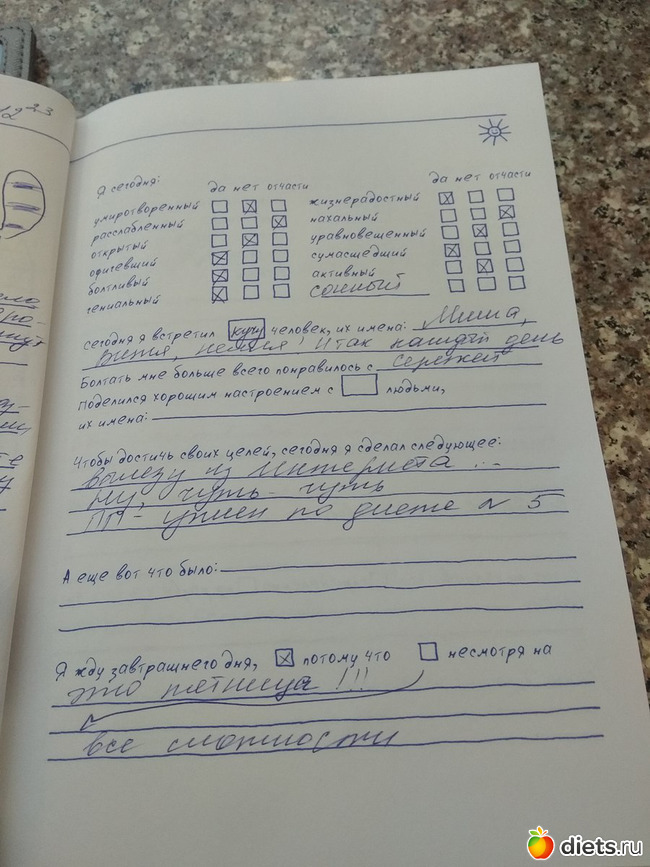 1223
Я сегодня:
да нет отчасти
умиротворенный
расслабленный
открытый
офигевший
болтливый
гениальный
да нет отчасти
жизнерадостный
нахальный
уравновешенный
сумасшедший
активный
сонный
сегодня я встретил кучу человек, их имена: Миша,
Витя, И так каждый день
Болтать мне больше всего понравилось с Сережей
Поделился хорошим настроением с людьми,
их имена:
Чтобы достичь своих целей, сегодня я сделал следующее:
вылезу из интернета ...
ну, чуть-чуть
ПП - ужин по диете № 5
А еще вот что было:
Я жду завтрашнего дня, потому что несмотря на
это пятница!!!
все сложности
diets.ru